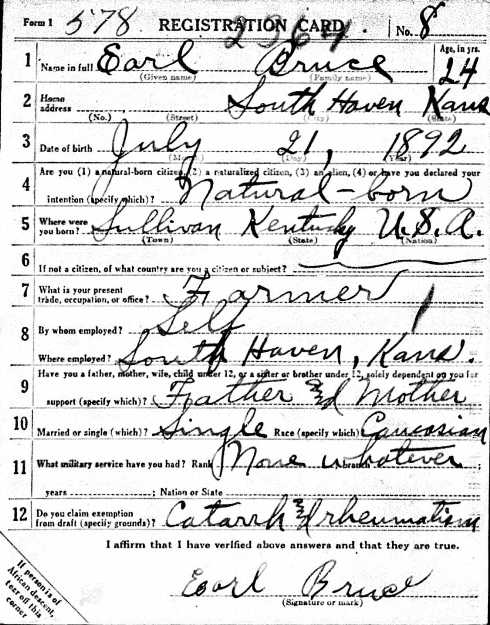 Form 1 578 REGISTRATION CARD 2364 No. 8
1 Name in full Earl Bruce Age, in yrs. 24
(Given name) (Family name)
2 Home address South Haven Kans
(No.) (Street) (City) (State)
3 Date of birth July 21, 1892
(Month) (Day) (Year)
Are you (1) a natural-born citizen, (2) a naturalized citizen, (3) an alien, (4) or have you declared your
4 intention (specify which)? Natural-born
5 Where were you born? Sullivan Kentucky U.S.A.
(Town) (State) (Nation)
6 If not a citizen, of what country are you a citizen or subject?
7 What is your present trade, occupation, or office? Farmer
8 By whom employed? Self
Where employed? South Haven, Kans.
Have you a father, mother, wife, child under 12, or a sister or brother under 12, solely dependent on you for
9 support (specify which)? Father and Mother
10 Married or single (which)? Single Race (specify which) Caucasian
11 What military service have you had? Rank None whatever branch ;
years ; Nation or State
12 Do you claim exemption from draft (specify grounds)? Catarrh and rheumatism
I affirm that I have verified above answers and that they are true.
Earl Bruce
(Signature or mark)
If person is of
African descent,
tear off this
corner